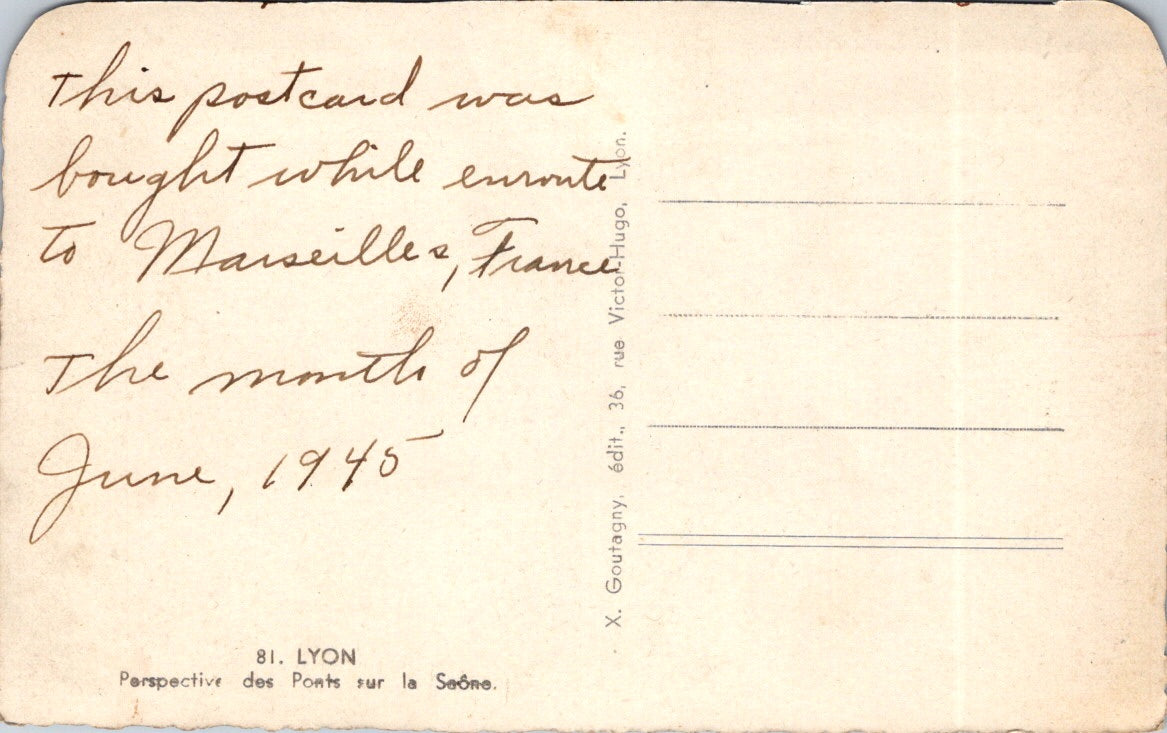 This postcard was
bought while enroute
to Marseilles, France
The month of
June, 1945
X. Goutagny, édit., 36, rue Victor-Hugo, Lyon.
81. LYON
Perspective des Ponts sur la Saône.